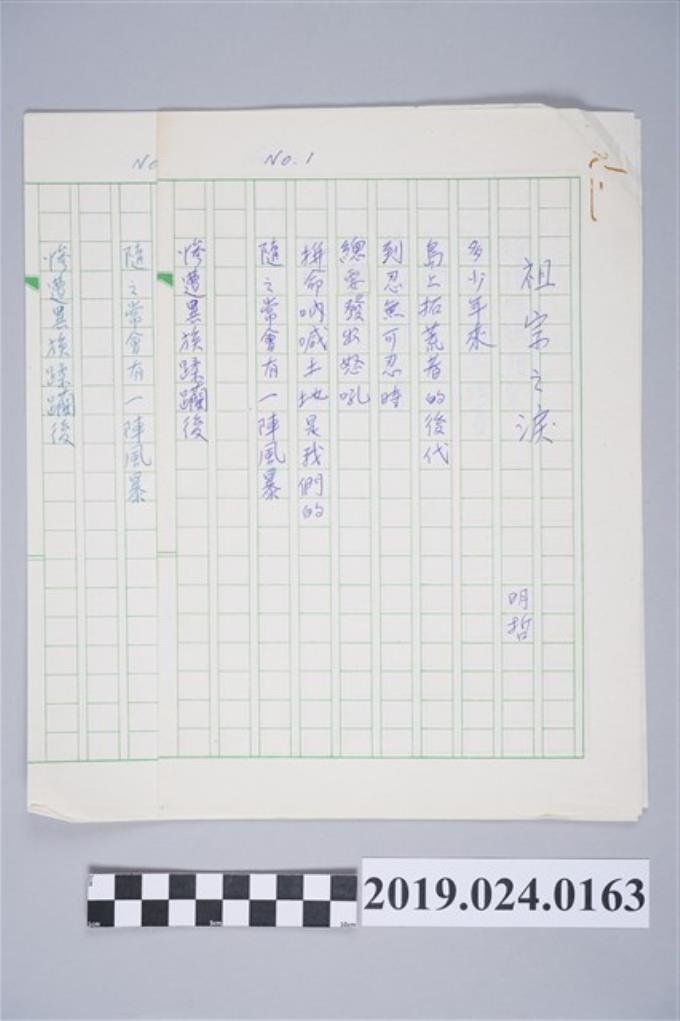 No. 1
祖宗之淚
明哲
多少年來
島上拓荒者的後代
到忍無可忍時
總要發出怒吼
拼命吶喊土地是我們的
隨之常會有一陣風暴
慘遭異族蹂躪後
No
隨之常會有一陣風暴
慘遭異族蹂躪後
2019.024.0163